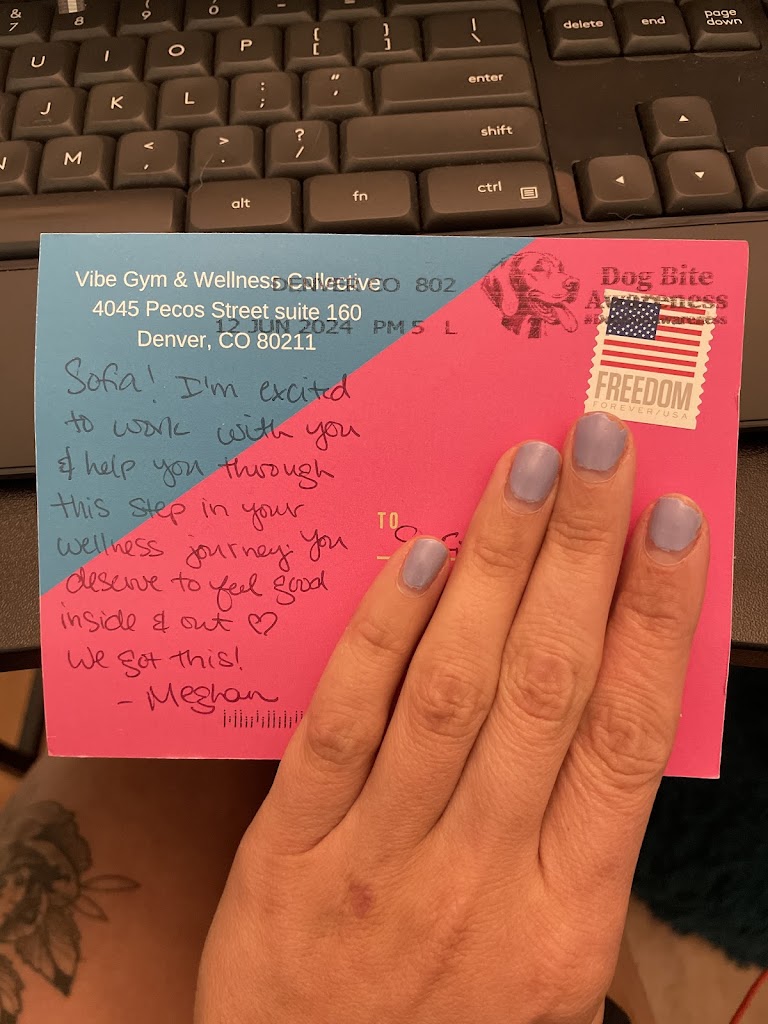 &
7
8
9
0
{
[
}
]
|
\
delete
end
page
down
U
I
O
P
J
K
L
:
;
"
'
enter
N
M
<
,
>
.
?
/
shift
alt
fn
ctrl
Vibe Gym & Wellness Collective
4045 Pecos Street suite 160
Denver, CO 80211
DENVER CO 802
12 JUN 2024 PM 5 L
Dog Bite
Awareness
FREEDOM
FOREVER/USA
Sofia! I'm excited
to work with you
& help you through
this step in your
wellness journey. You
deserve to feel good
inside & out ♡
We got this!
- Meghan
TO